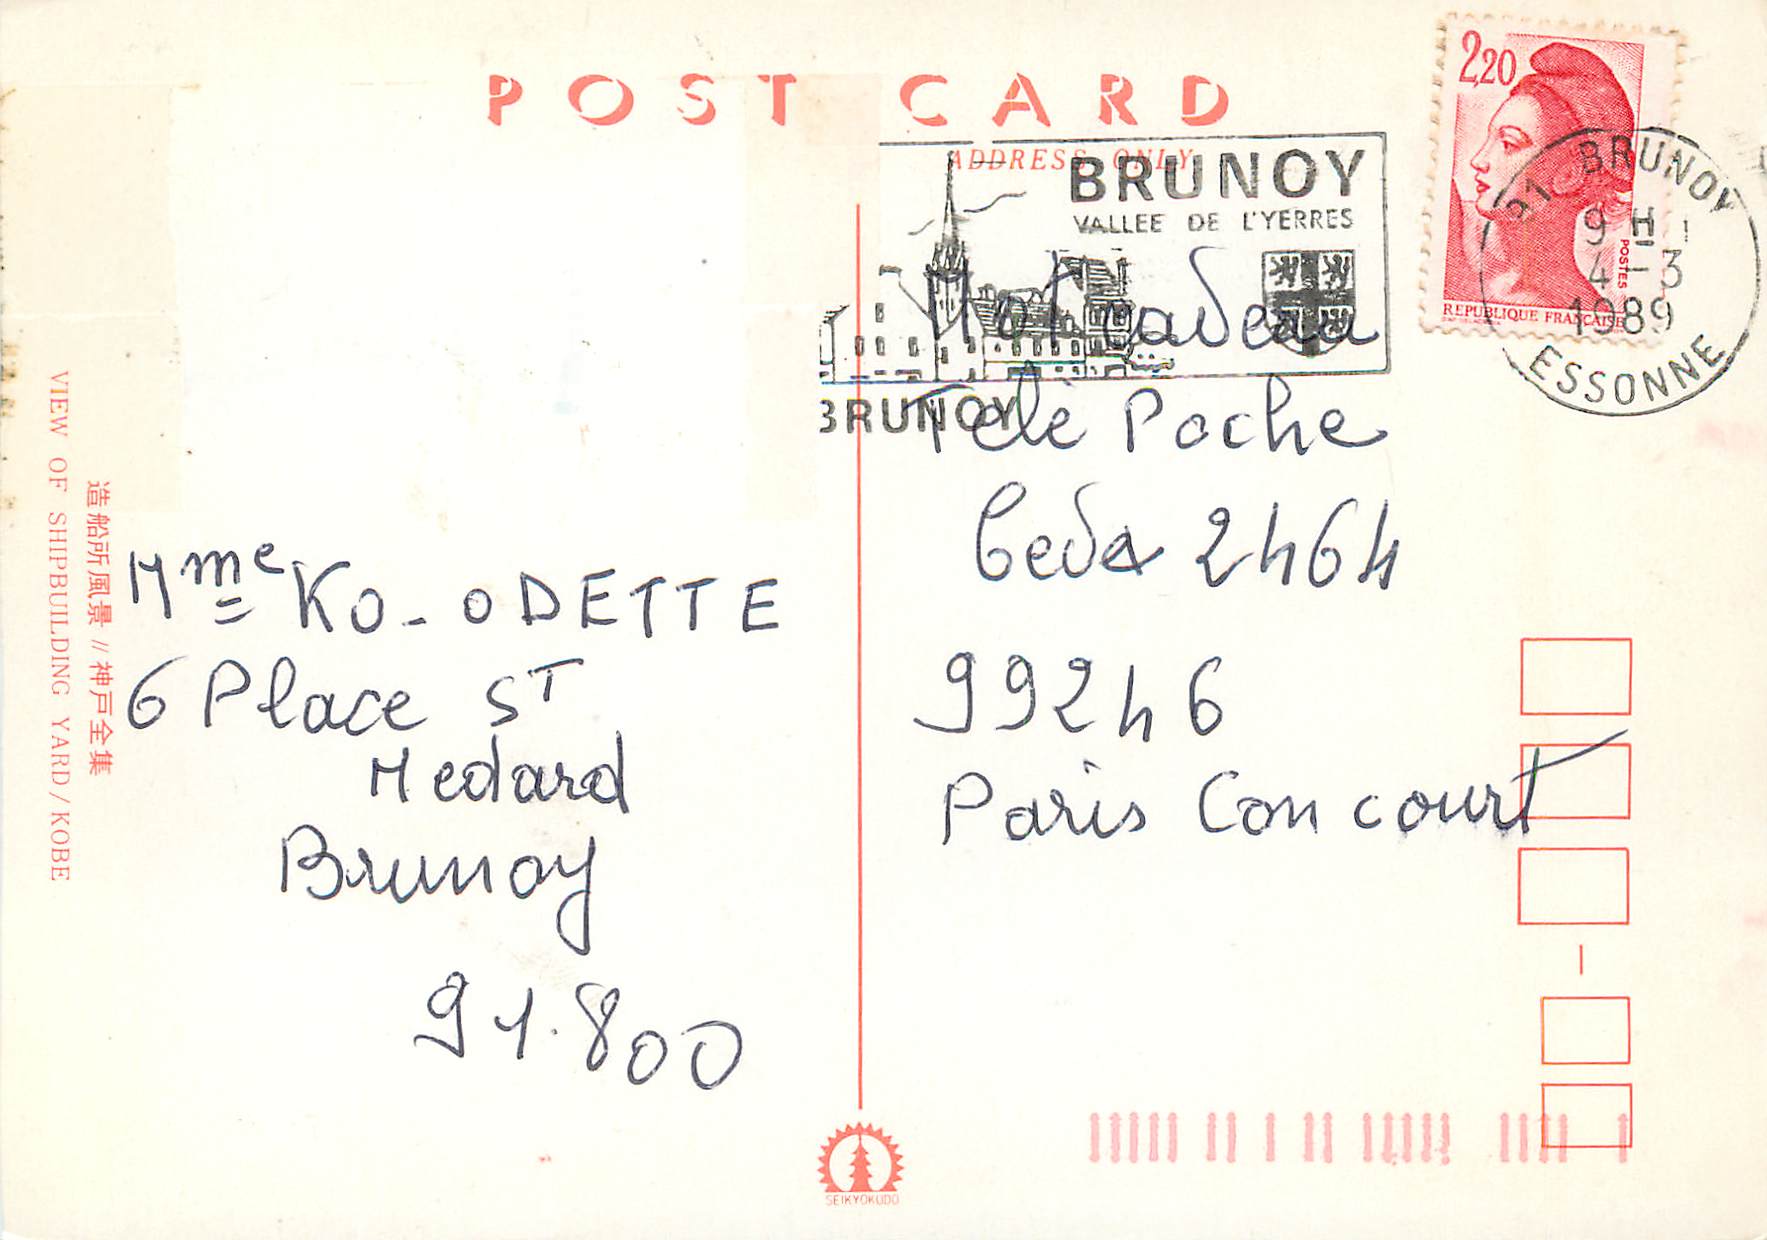 POST CARD
ADDRESS ONLY
BRUNOY
VALLEE DE L'YERRES
BRUNOY
2,20
POSTES
REPUBLIQUE FRANÇAISE
91 BRUNOY
9 H
4-3
1989
ESSONNE
Mot cadeau
Telè Poche
Cedex 2464
99246
Paris Concourt
Mme KO-ODETTE
6 Place ST
Medard
Brunoy
91.800
造船所風景//神戸全集
VIEW OF SHIPBUILDING YARD/KOBE
SEIKYOKUDO